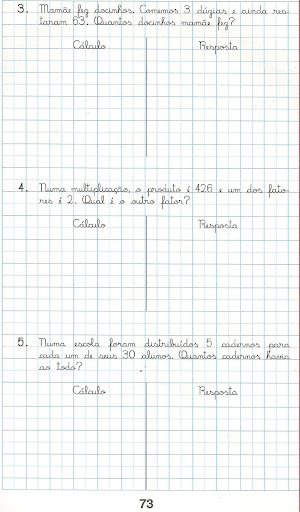 3. Mamãe fez docinhos. Comemos 3 dúzias e ainda res-
taram 63. Quantos docinhos mamãe fez?
Cálculo Resposta
4. Numa multiplicação, o produto é 426 e um dos fato-
res é 2. Qual é o outro fator?
Cálculo Resposta
5. Numa escola foram distribuídos 5 cadernos para
cada um de seus 30 alunos. Quantos cadernos havia
ao todo?
Cálculo Resposta
73